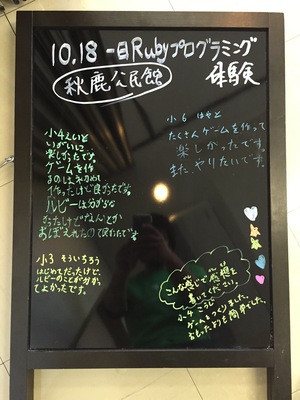 10.18 一日Rubyプログラミング
体験
秋鹿公民館
小4えいと
いがいに
楽しかったです。
ゲームを作
るのははじめて
作ったけど良かったです。
ルビーは分からな
かったけどなんとか
おぼえれたので良かったです。
小6 はると
たくさんゲームを作って
楽しかったです。
また、やりたいです。
小3 そういちろう
はじめてだったけど、
ルビーのことが分かっ
てよかったです。
こんな感じで感想を
書いてください。
小4 こうじ
ゲームをつくりました。